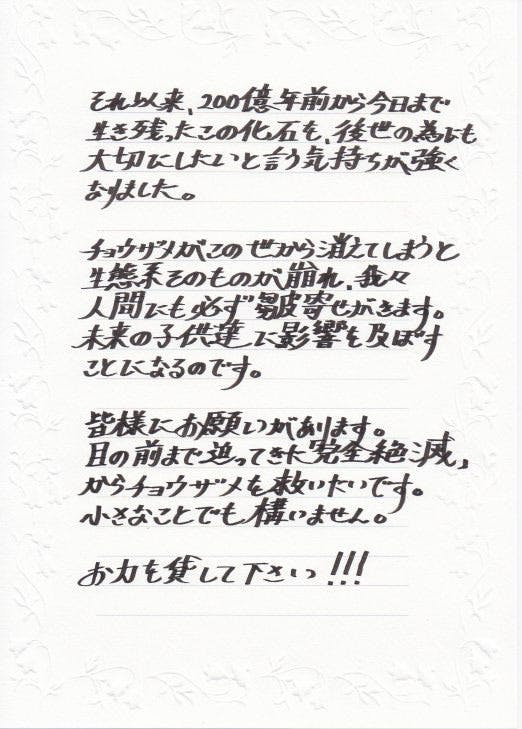 それ以来、200億年前から今日まで
生き残ったこの化石を、後世の為にも
大切にしたいと言う気持ちが強く
なりました。
チョウザメがこの世から消えてしまうと
生態系そのものが崩れ、我々
人間にも必ず皺寄せがきます。
未来の子供達に影響を及ぼす
ことになるのです。
皆様にお願いがあります。
目の前まで迫ってきた「完全絶滅」
からチョウザメを救いたいです。
小さなことでも構いません。
お力を貸して下さい!!!